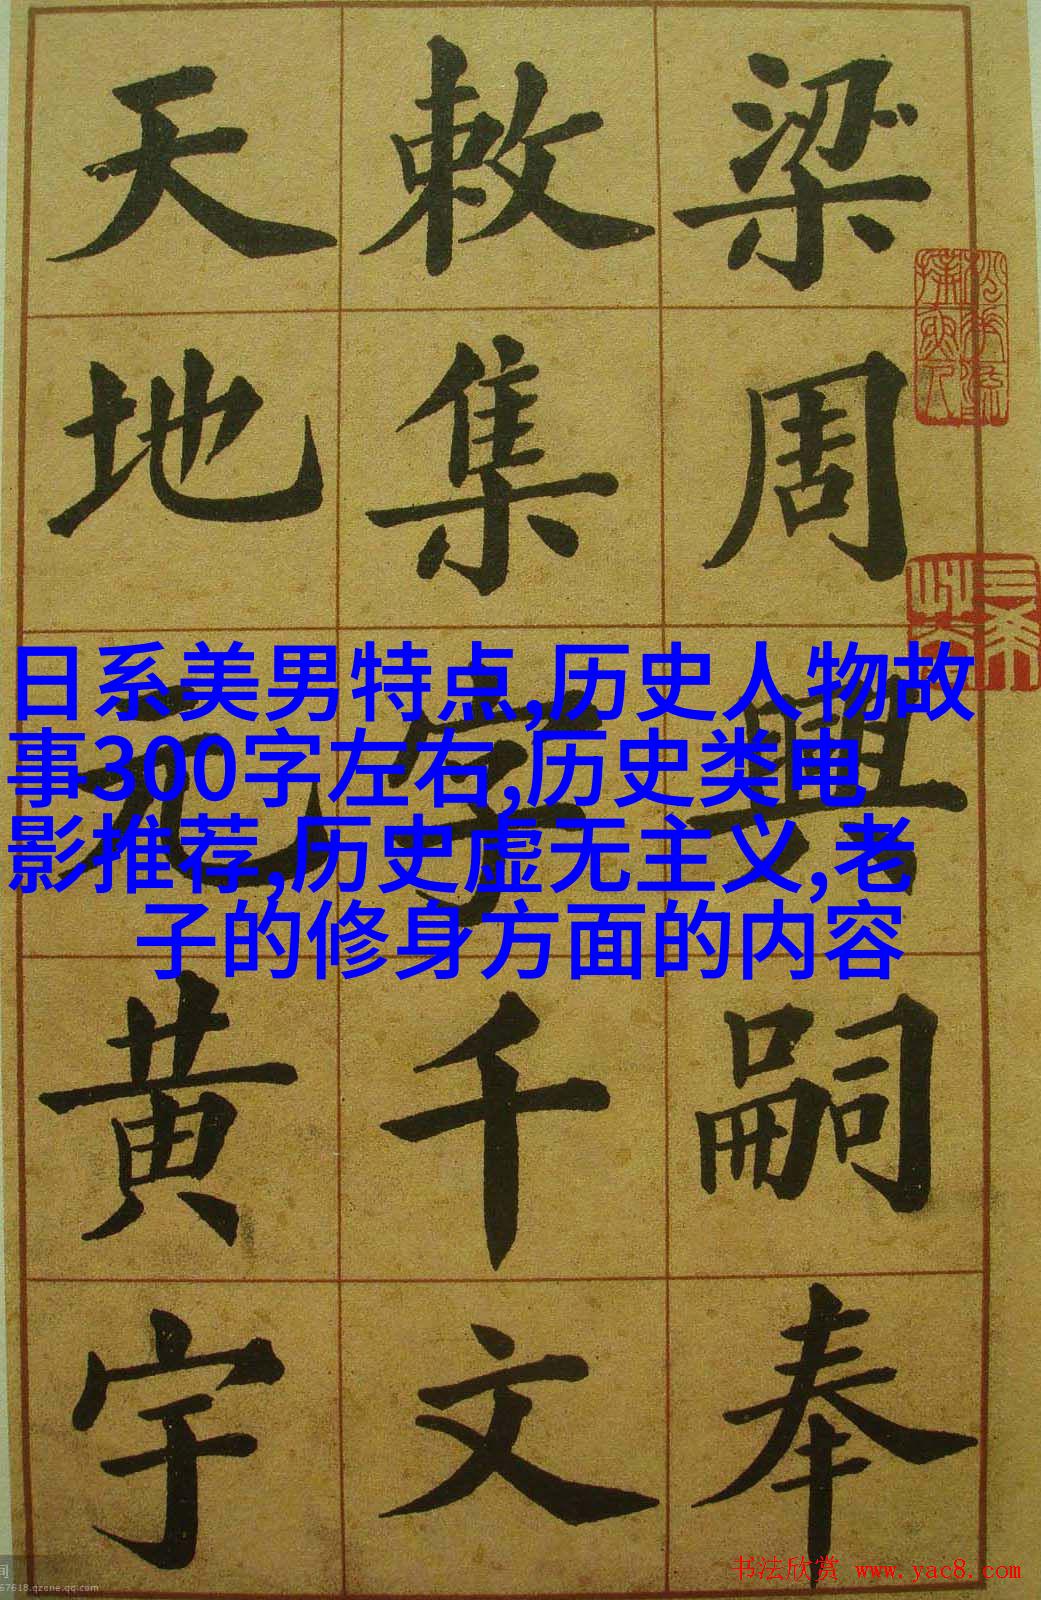 梁周興嗣奉
敕集字千文
天地元黄宇
日系美男特点,历史人物故
事300字左右,历史类电
影推荐,历史虚无主义,老
子的修身方面的内容
书法欣赏 www.yac8.com
67618.qzone.qq.com